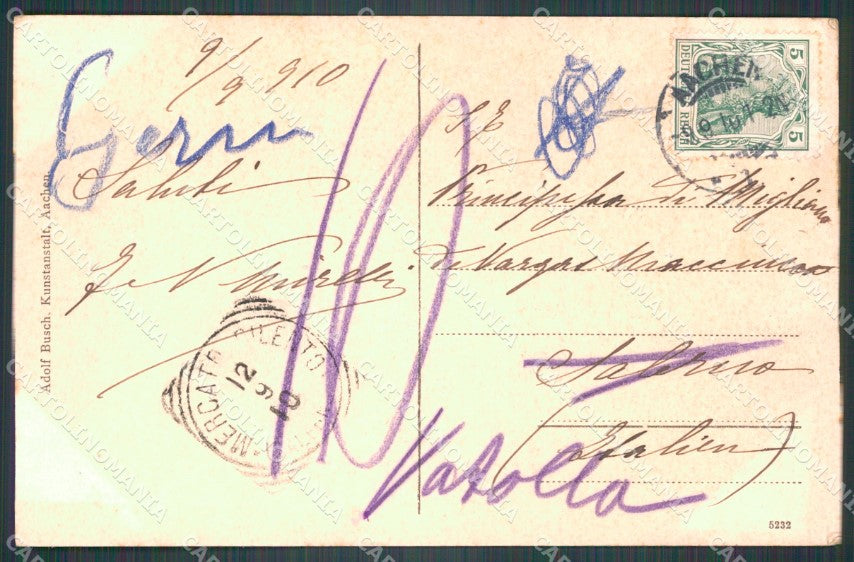 9/9 910
Saluti
S. E.
Principessa di Migliano
de Vargas Macciucca
Salerno
(Italien)
Vatolla
10
AACHEN
DEUTSCHES REICH
5
5
MERCATO CILENTO
12
9
10
Adolf Busch. Kunstanstalt, Aachen.
5232
CARTOLINOMANIA